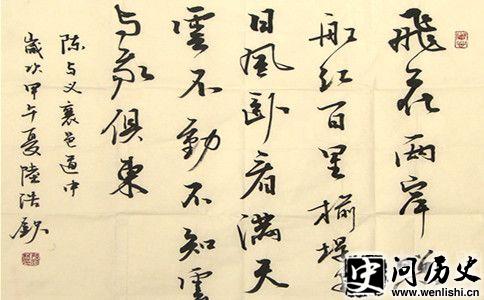 飛花兩岸照
船红百里榆堤半
日風卧看滿天
雲不動不知雲
与我俱東
陈与义襄邑道中
歲次甲午夏陸浩
问历史
www.wenlishi.cn